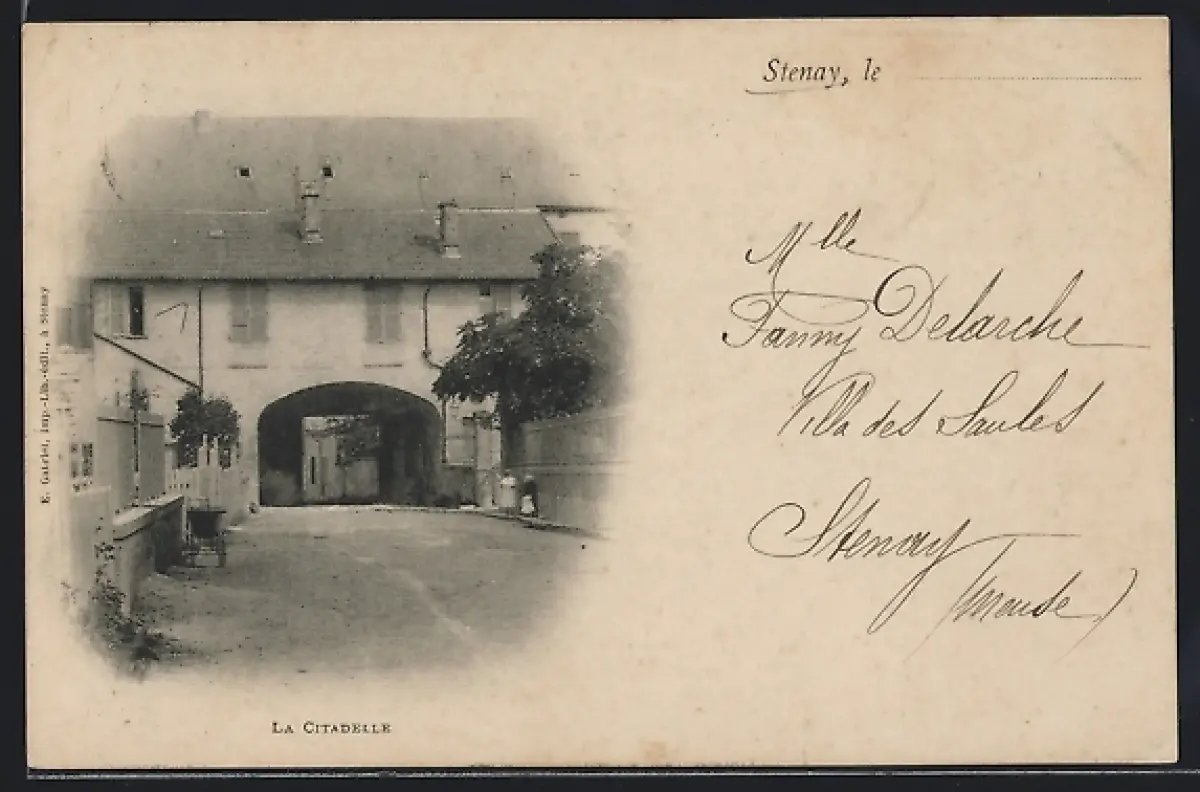 Stenay, le
Mlle
Fanny Delarche
Villa des Saules
Stenay
(Meuse)
E. Gatelet, Imp.-Lib.-édit., à Stenay
LA CITADELLE